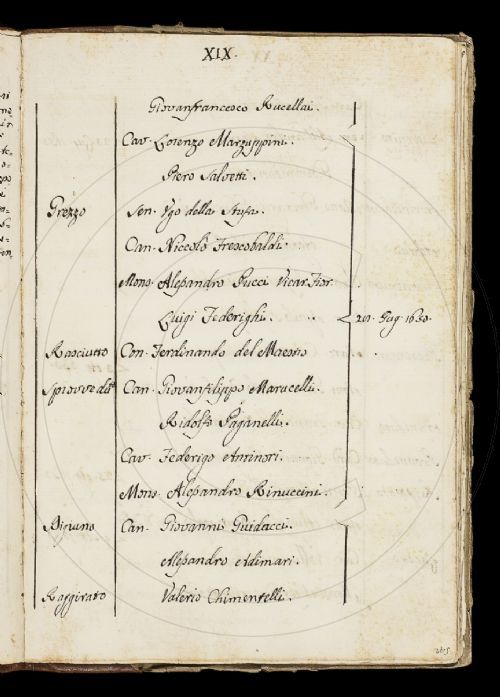 XIX.
Giovanfrancesco Rucellai.
Cav. Lorenzo Marzuppini.
Piero Salvetti.
Grezzo Sen. Ugo della Stufa.
Can. Niccolò Frescobaldi.
Mons. Alesandro Pucci Vicar. Fior.
Luigi Federighi. 20. Lug. 1650.
Rasciutto Con. Ferdinando del Maestro
Sprovveduto Can. Giovanfilippo Marucelli.
Ridolfo Paganelli.
Cav. Federigo Aminori.
Mons. Alesandro Rinuccini.
Can. Giovanni Guidacci.
Alesandro Adimari.
Raggirato Valerio Chimentelli.